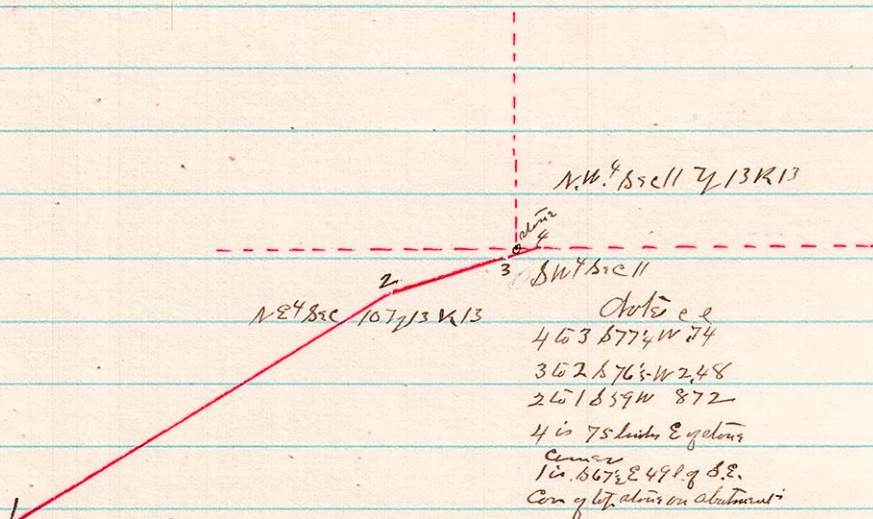 N.W.4 Sec 11 T 13 R 13
stone
4
3
SW4 Sec 11
2
NE4 Sec 10 T 13 R 13
Notes
4 to 3 S77½W .74
3 to 2 S76½W 2.48
2 to 1 S59W 872
4 is 75 links E of stone
corner
1 is S67½E 49 l. of S.E.
Cor of top stone on abutment
1